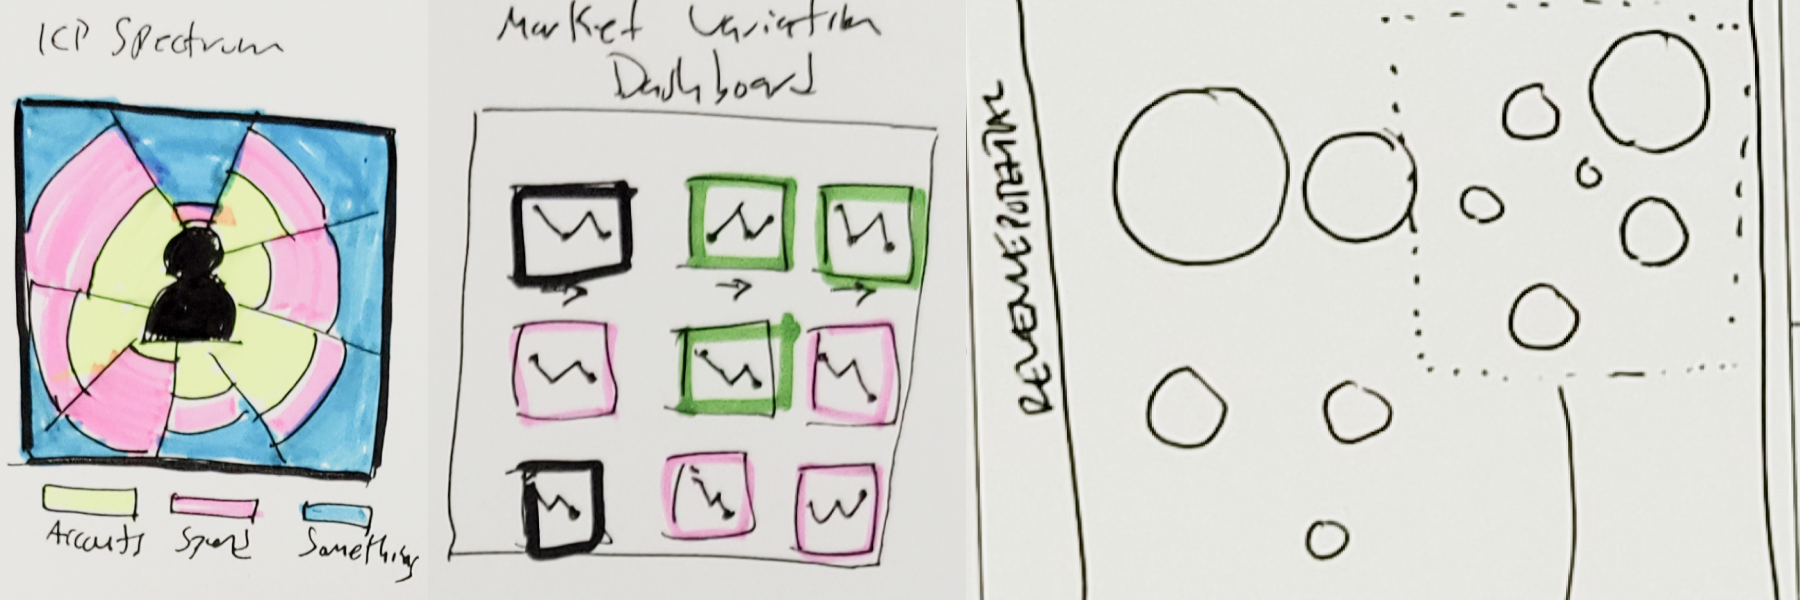 ICP Spectrum
Accounts Spend Something
Market Variation
Dashboard
REVENUE POTENTIAL